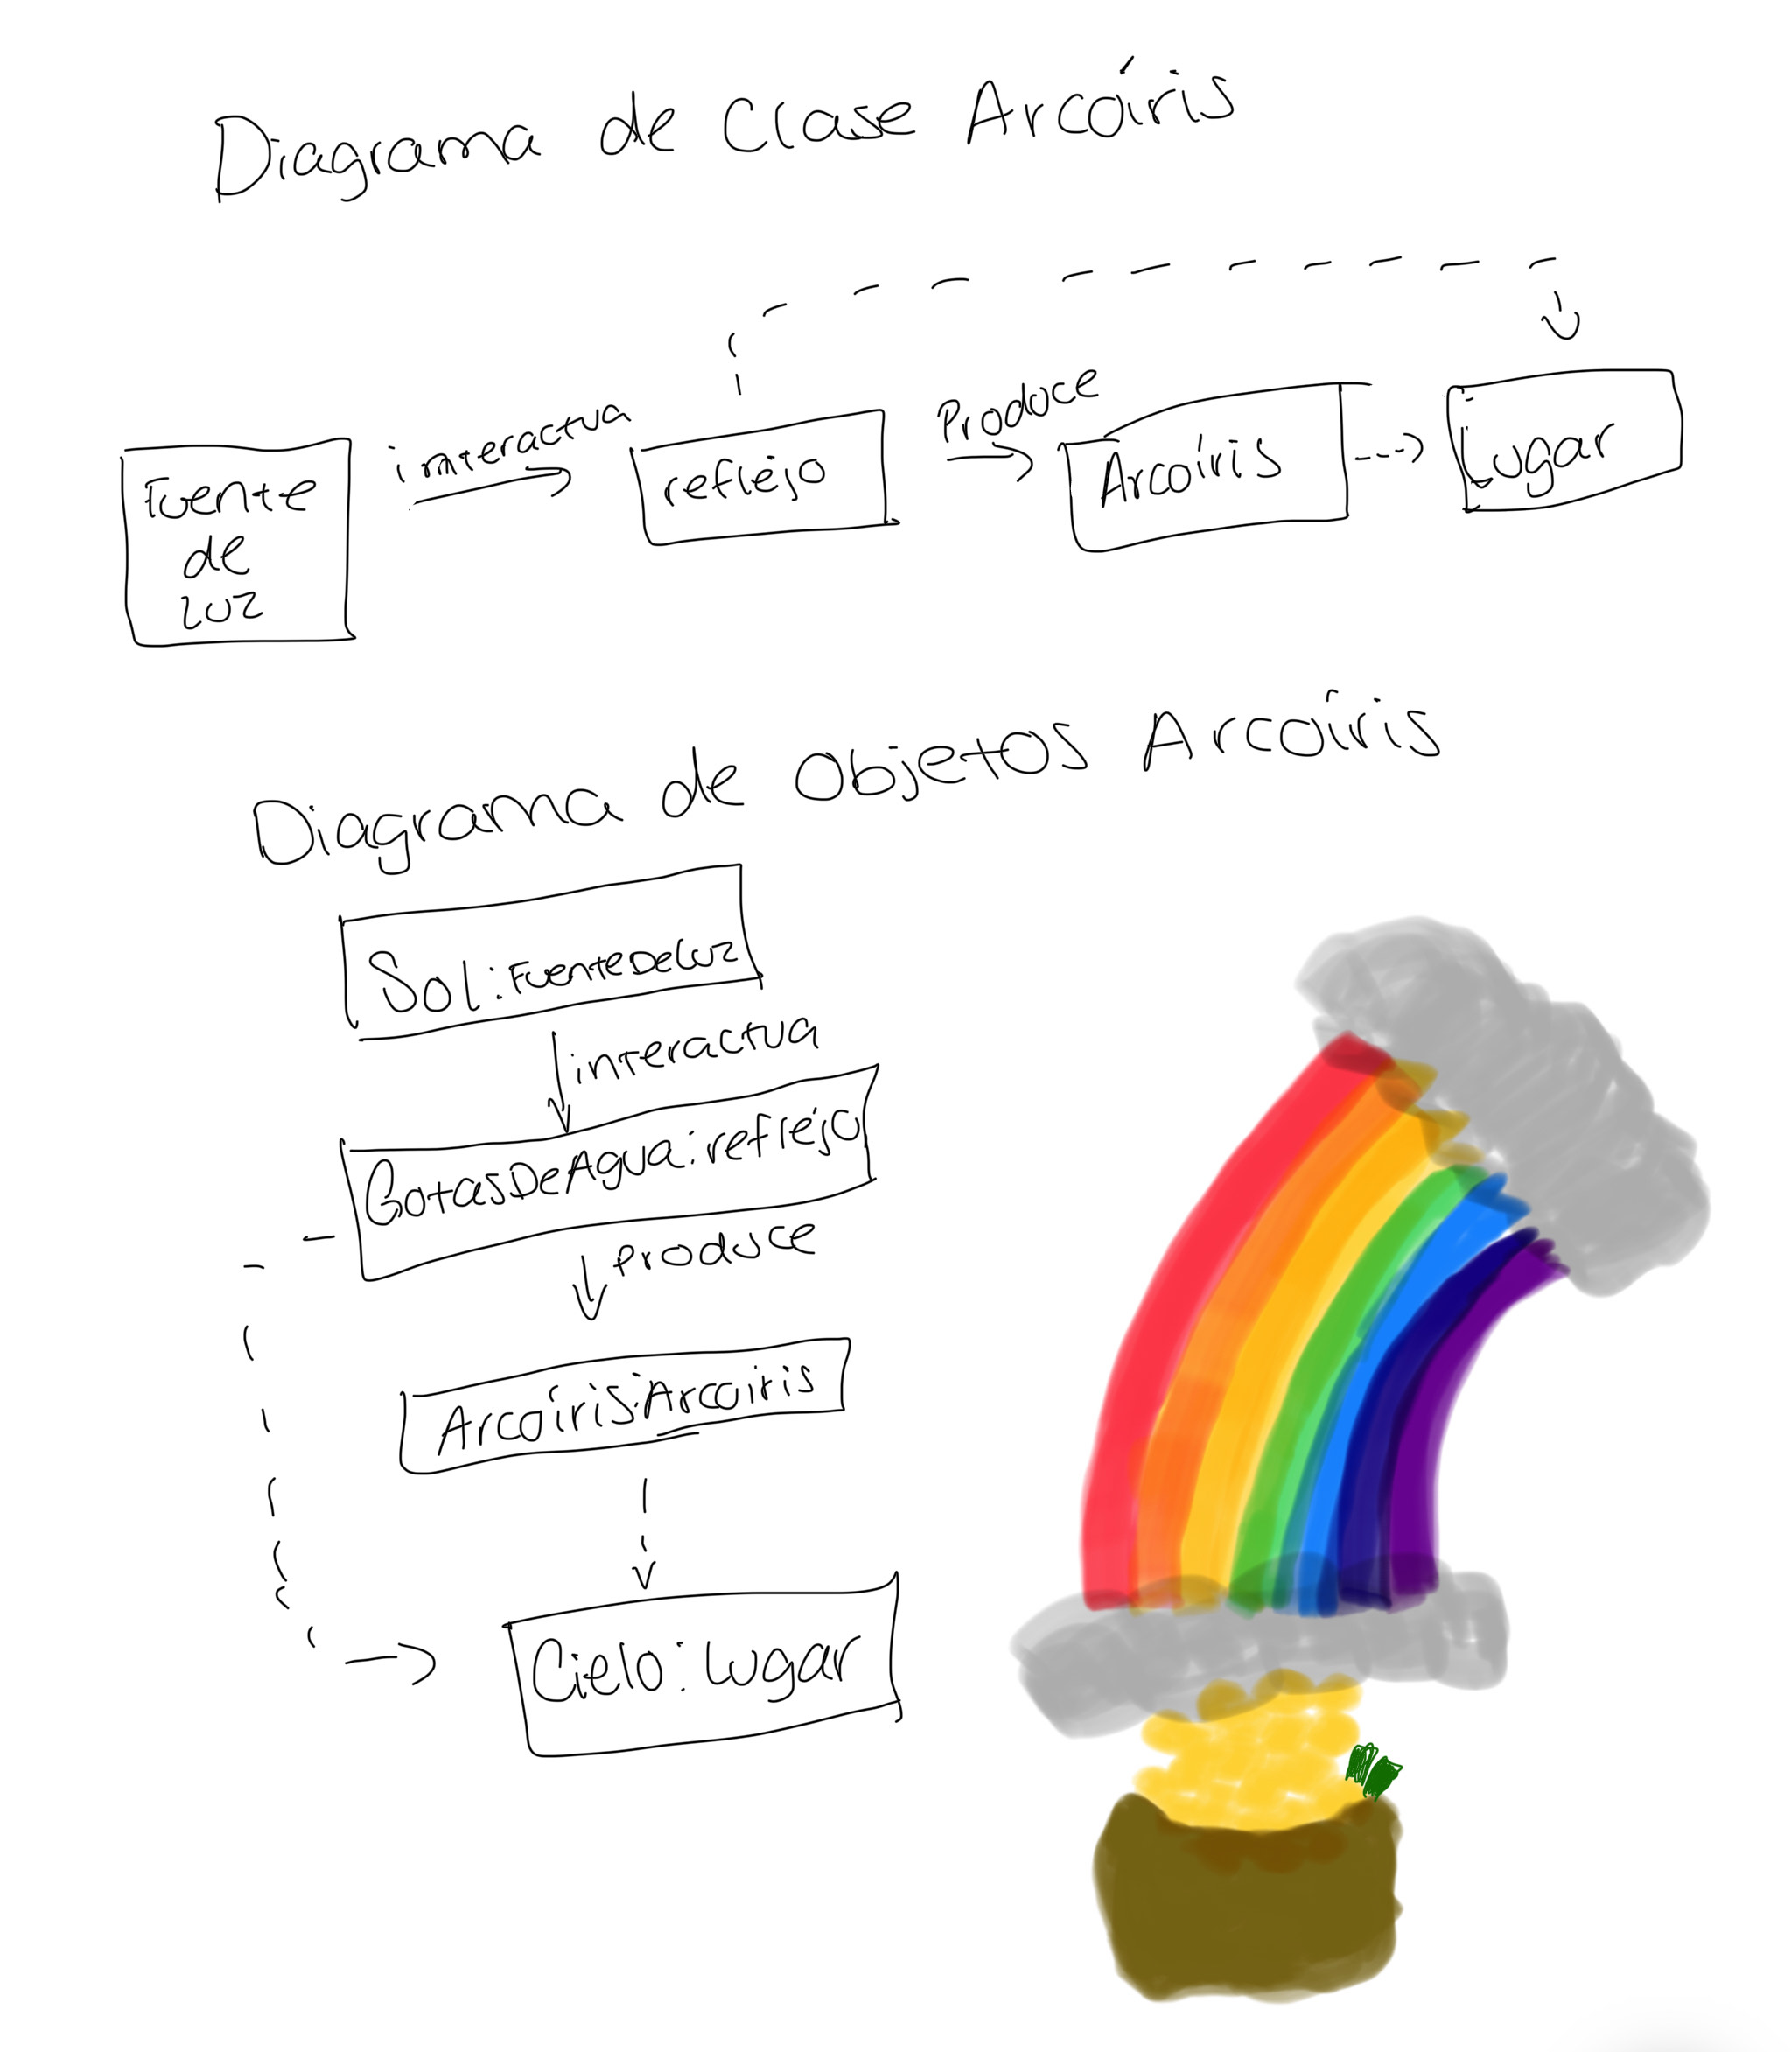 Diagrama de Clase Arcoíris
interactua
Produce
Fuente
de
luz
reflejo
Arcoíris
Lugar
Diagrama de Objetos Arcoíris
Sol:FuenteDeluz
interactua
GotasDeAgua:reflejo
Produce
Arcoíris:Arcoiris
Cielo:Lugar